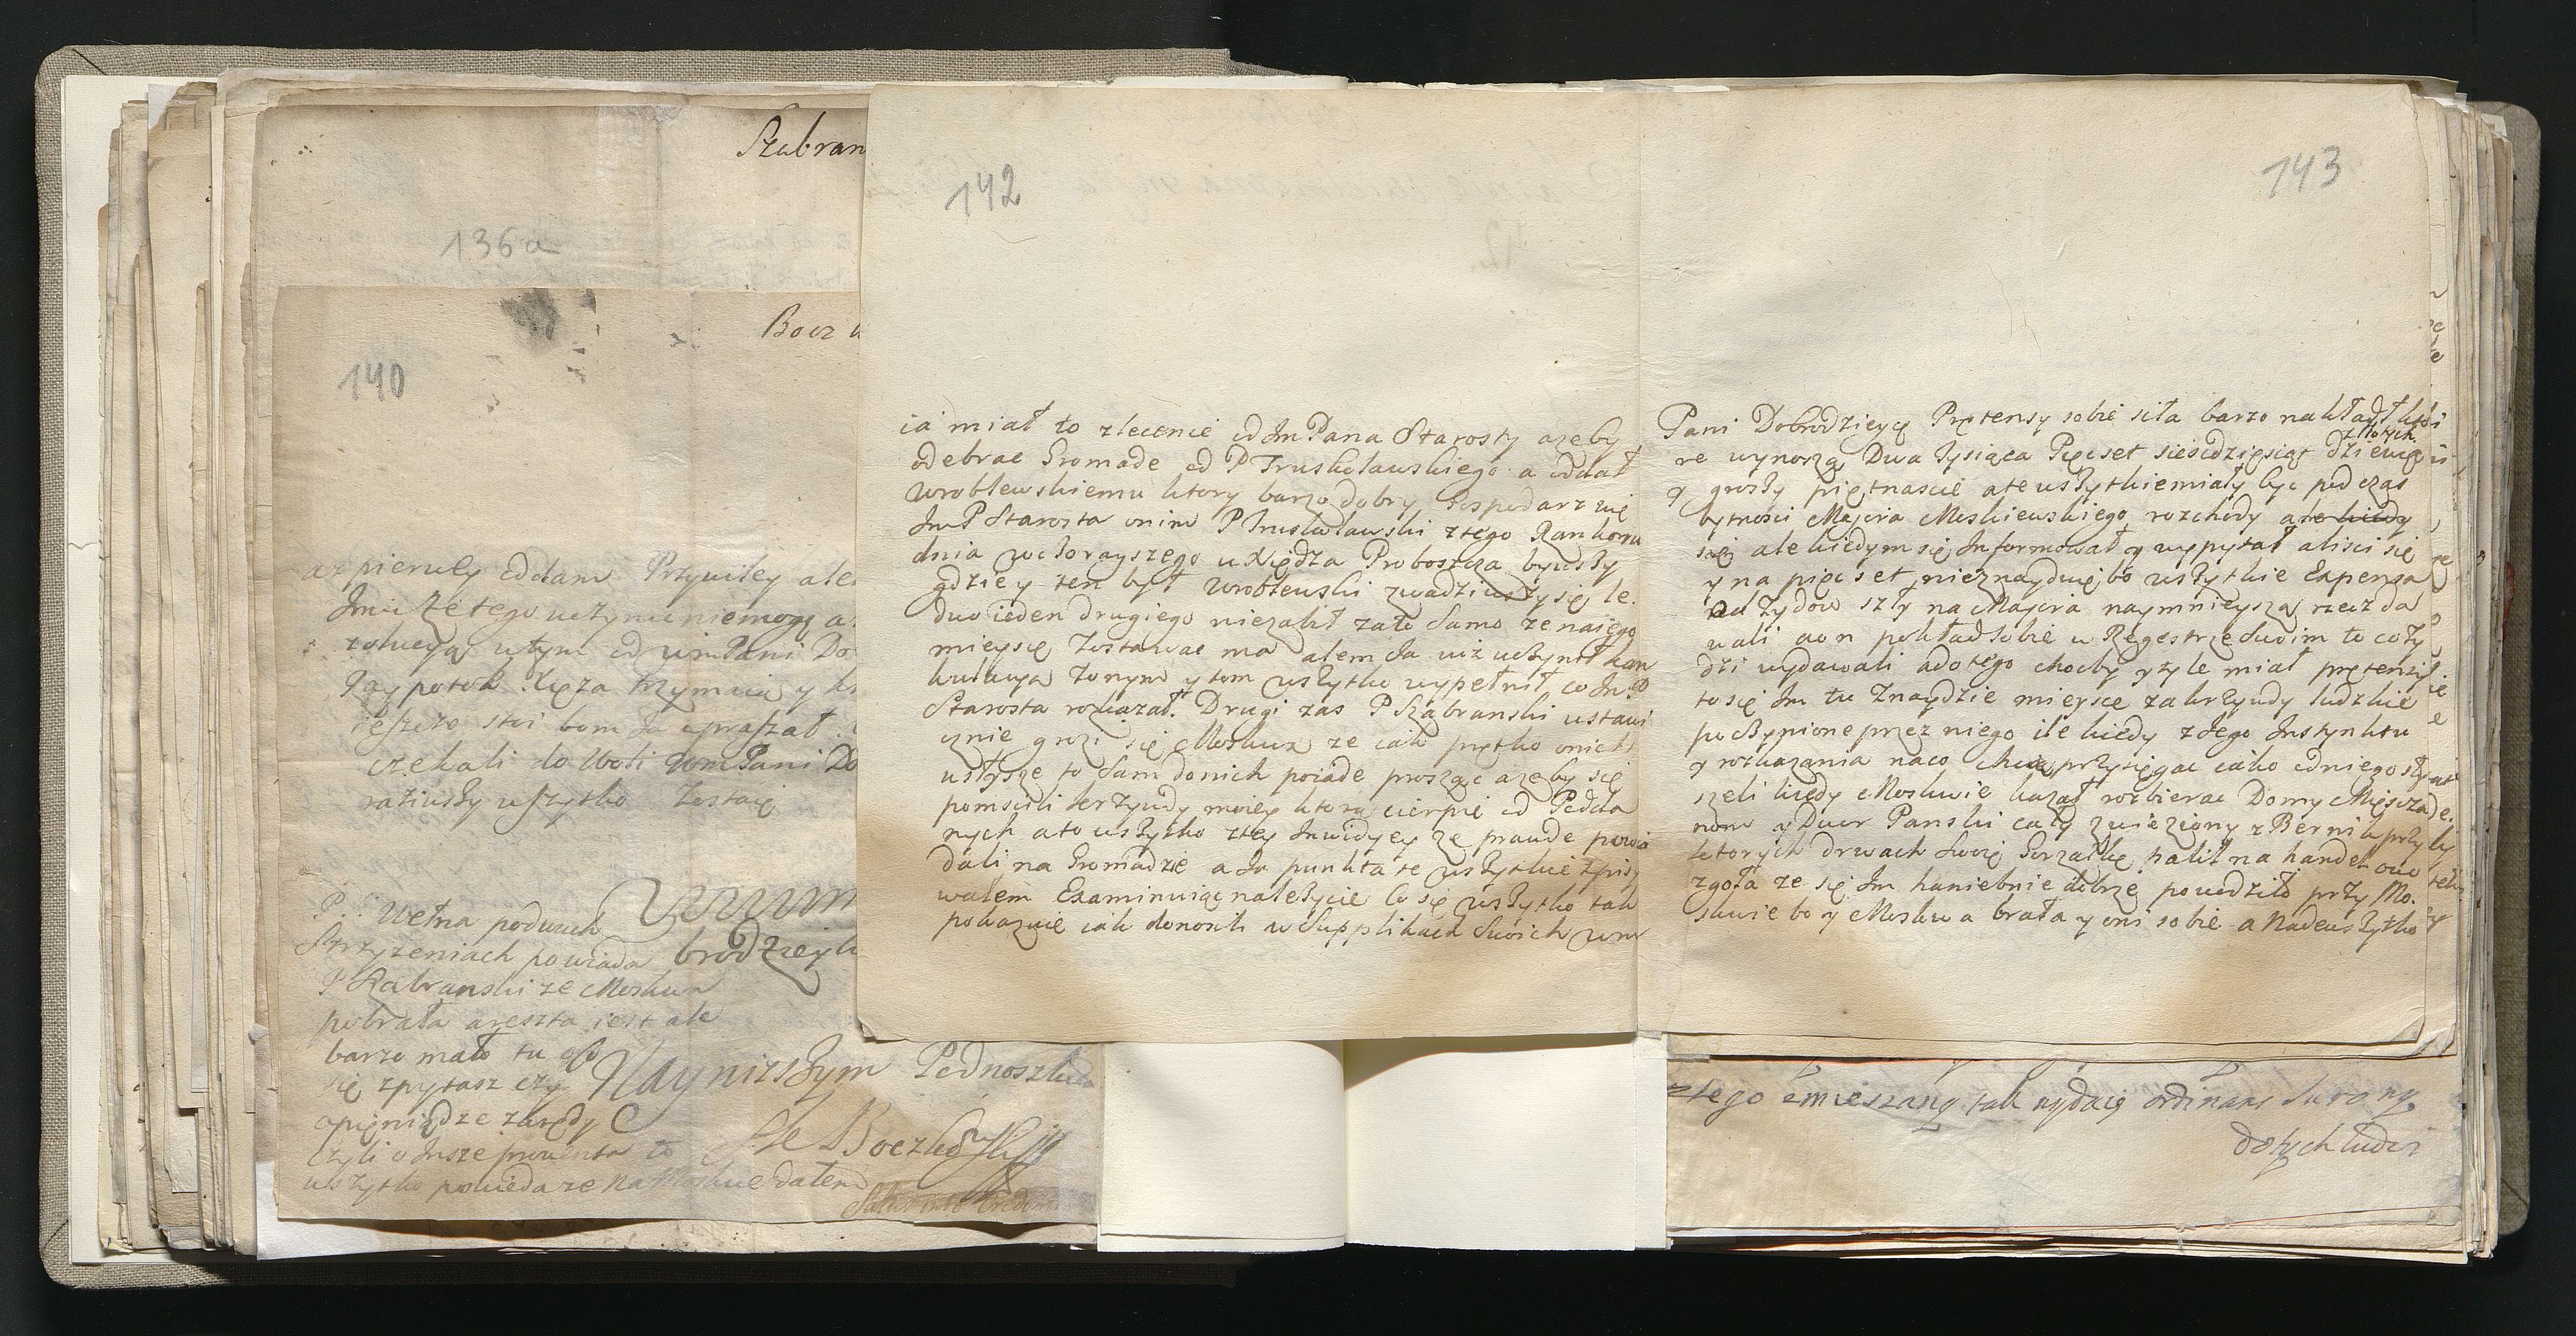 Szabran
136a
Bocz
140
az pierwey oddam Przywiley ale
Jmci ze tego uczynic niemogę a
zolucyą wtym od wimPani Do
Jzy potok Xięża trzymaią y
ieszcze stoi bom Ja upraszał
czekali do Woli WmPani Do
raziwszy wszytko Zostaię
P.S. Wełna podwuch
Strzyzeniach powiada
brodzieyk
P Szabranski ze Moskwa
pobrała a reszta iest ale
barzo mało tu
się zpytasz czy
Naynizszym Podnoszkiem
apieniądze zawsdy
czyli o Insze prowenta to
wszytko powieda ze na Moskwe dałem
142
ia miał to zlecenie od Jm Pana Starosty azeby
odebrac Gromade od P Truskolawskiego a oddał
Wroblewskiemu ktory barzo dobry Gospodarz wię
JmP Starosta onim P Truskolawski ztego Rankoru
dnia wczorayszego u Xiędza Proboszcza bywszy
gdzie y ten był Wroblewski zwadziwszy się le.
dwo ieden drugiego niezabił zato Samo ze naiego
mieysce Zostawac ma alem Ja iuz uczynił kal
kulacyą Zonym y tom wszytko wypełnił co Jm P
Starosta rozkazał. Drugi zas P Szabranski ustawi
cznie grozi się Moskwą ze iak prętko onich
usłysze to Sam donich poiade proszęc azeby się
pomscili krzywdy moiey ktorą cierpię od Podda
nych ato wszytko ztey Inwidyey ze prawde powia
dali na Gromadzie a Ja punkta te wszytkie zpisy
wałem Examinuiąc należycie Co się wszytko tak
pokazuie iak donosili w Supplikach Swoich wm
143
Pani Dobrodzieyce Pretensy sobie siła barzo nakładł kto
złotych
re wynoszą Dwa Tysiąca Pięcset siescdziesiąt dziewię
y groszy piętnascie ate wszytkie miały byc podczas
bytnosci Majora Moskiewskiego rozchody ale kiedy
się ale kiedym się Informował y wypytał alisci się
y na pięcset nieznayduię bo wszytkie Expensa
od Zydow szły na Majora naymnieyszą rzecz da
wali aon pokład sobie w Regestrze Swoim to co Zy
dzi wydawali adotego chocby y tyle miał pretensyi
to się Jm tu Znaydzie mieysce zakrzywdy ludzkie
poczynione przez niego ile kiedy z Jego Instynktu
y rozkazania naco chcą przysięgac iako od niego sły
szeli kiedy Moskwie kazał rozbierac Domy Mięscza
nom y Dwor Panski cały zwieziony z Bernik przy
ktorych drwach Swoię Gorzałkę palił na handel owo
zgoła ze się Jm haniebnie dobrze powodziło przy Mo.
skwie bo y Moskwa brała y oni sobie a Nadewszytko
ztego zmieszany tak wydaię ordinans Surowy
dotych ludzi